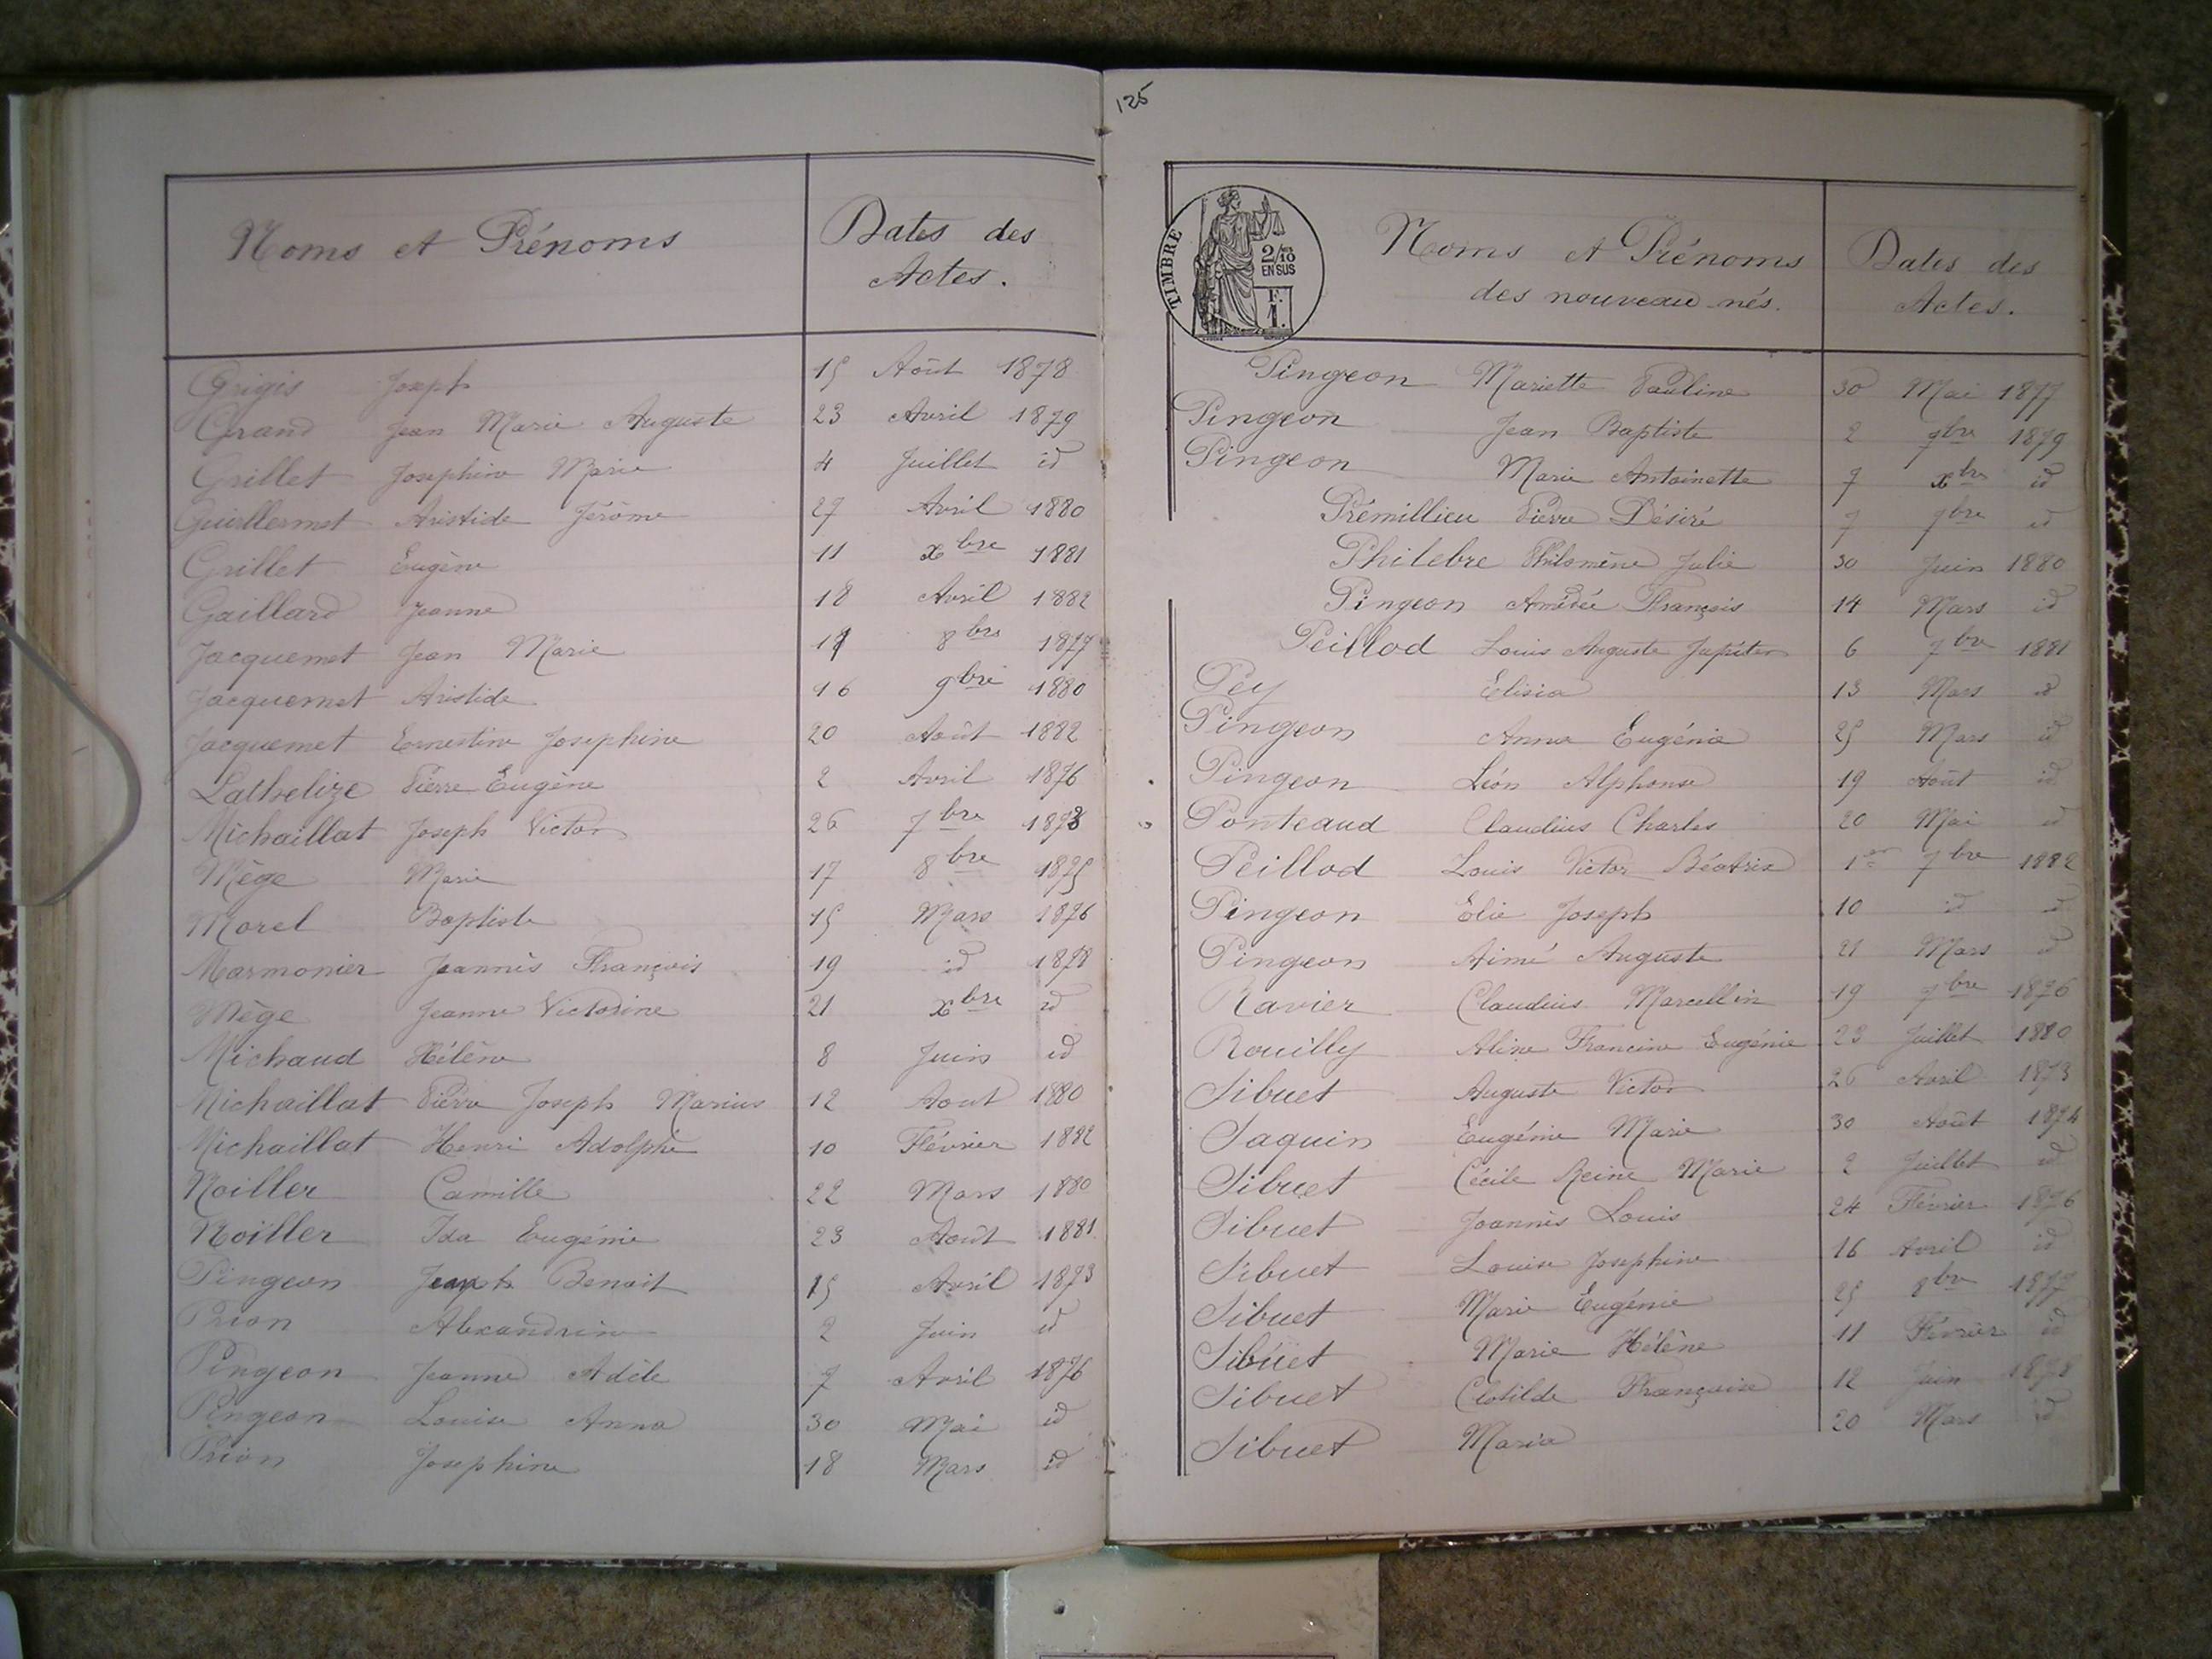 Noms et Prénoms
Dates des
Actes.
Grigis Joseph 15 Août 1878
Grand Jean Marie Auguste 23 Avril 1879
Grillet Joséphine Marie 4 Juillet id
Guillermet Aristide Jérôme 27 Avril 1880
Grillet Eugène 11 xbre 1881
Gaillard Jeanne 18 Avril 1882
Jacquemet Jean Marie 8bre 1877
Jacquemet Aristide 16 9bre 1880
Jacquemet Ernestine Josephine 20 Août 1882
Lathelize Pierre Eugène 2 Avril 1876
Michaillat Joseph Victor 26 7bre 1873
Mège Marie 17 8bre 1875
Morel Baptiste 15 Mars 1876
Marmonier Jeannès François 19 id 1878
Mège Jeanne Victorine 21 xbre id
Michaud Hélène 8 Juin id
Michaillat Pierre Joseph Marius 12 Aout 1880
Michaillat Henri Adolphe 10 Février 1882
Noiller Camille 22 Mars 1880
Noiller Ida Eugénie 23 Août 1881
Pingeon Joseph Benoit 15 Avril 1873
Prion Alexandrine 2 Juin id
Pingeon Jeanne Adèle 7 Avril 1876
Pingeon Louise Anna 30 Mai id
Prion Josephine 18 Mars id
125
TIMBRE
2/10
EN SUS
F.
1.
Noms et Prénoms
des nouveau nés.
Dates des
Actes.
Pingeon Mariette Pauline 30 Mai 1877
Pingeon Jean Baptiste 2 9bre 1879
Pingeon Marie Antoinette 7 xbre id
Prémillieu Pierre Désiré 7 7bre id
Philebre Philomène Julie 30 Juin 1880
Pingeon Amédée François 14 Mars id
Peillod Louis Auguste Jupiter 6 7bre 1881
Pey Elisia 13 Mars id
Pingeon Anna Eugénie 25 Mars id
Pingeon Léon Alphonse 19 Août id
Ponteaud Claudius Charles 20 Mai id
Peillod Louis Victor Béatrix 1er 7bre 1882
Pingeon Elie Joseph 10 id id
Pingeon Aimé Auguste 21 Mars id
Ravier Claudius Marcellin 19 7bre 1876
Rouilly Aline Francine Eugénie 23 Juillet 1880
Sibuet Auguste Victor 26 Avril 1873
Saquin Eugénie Marie 30 Août 1874
Sibuet Cécile Reine Marie 2 Juillet id
Sibuet Joannès Louis 24 Février 1876
Sibuet Louise Josephine 16 Avril id
Sibuet Marie Eugénie 25 8bre 1877
Sibuet Marie Hélène 11 Février id
Sibuet Clotilde Françoise 12 Juin 1878
Sibuet Maria 20 Mars id